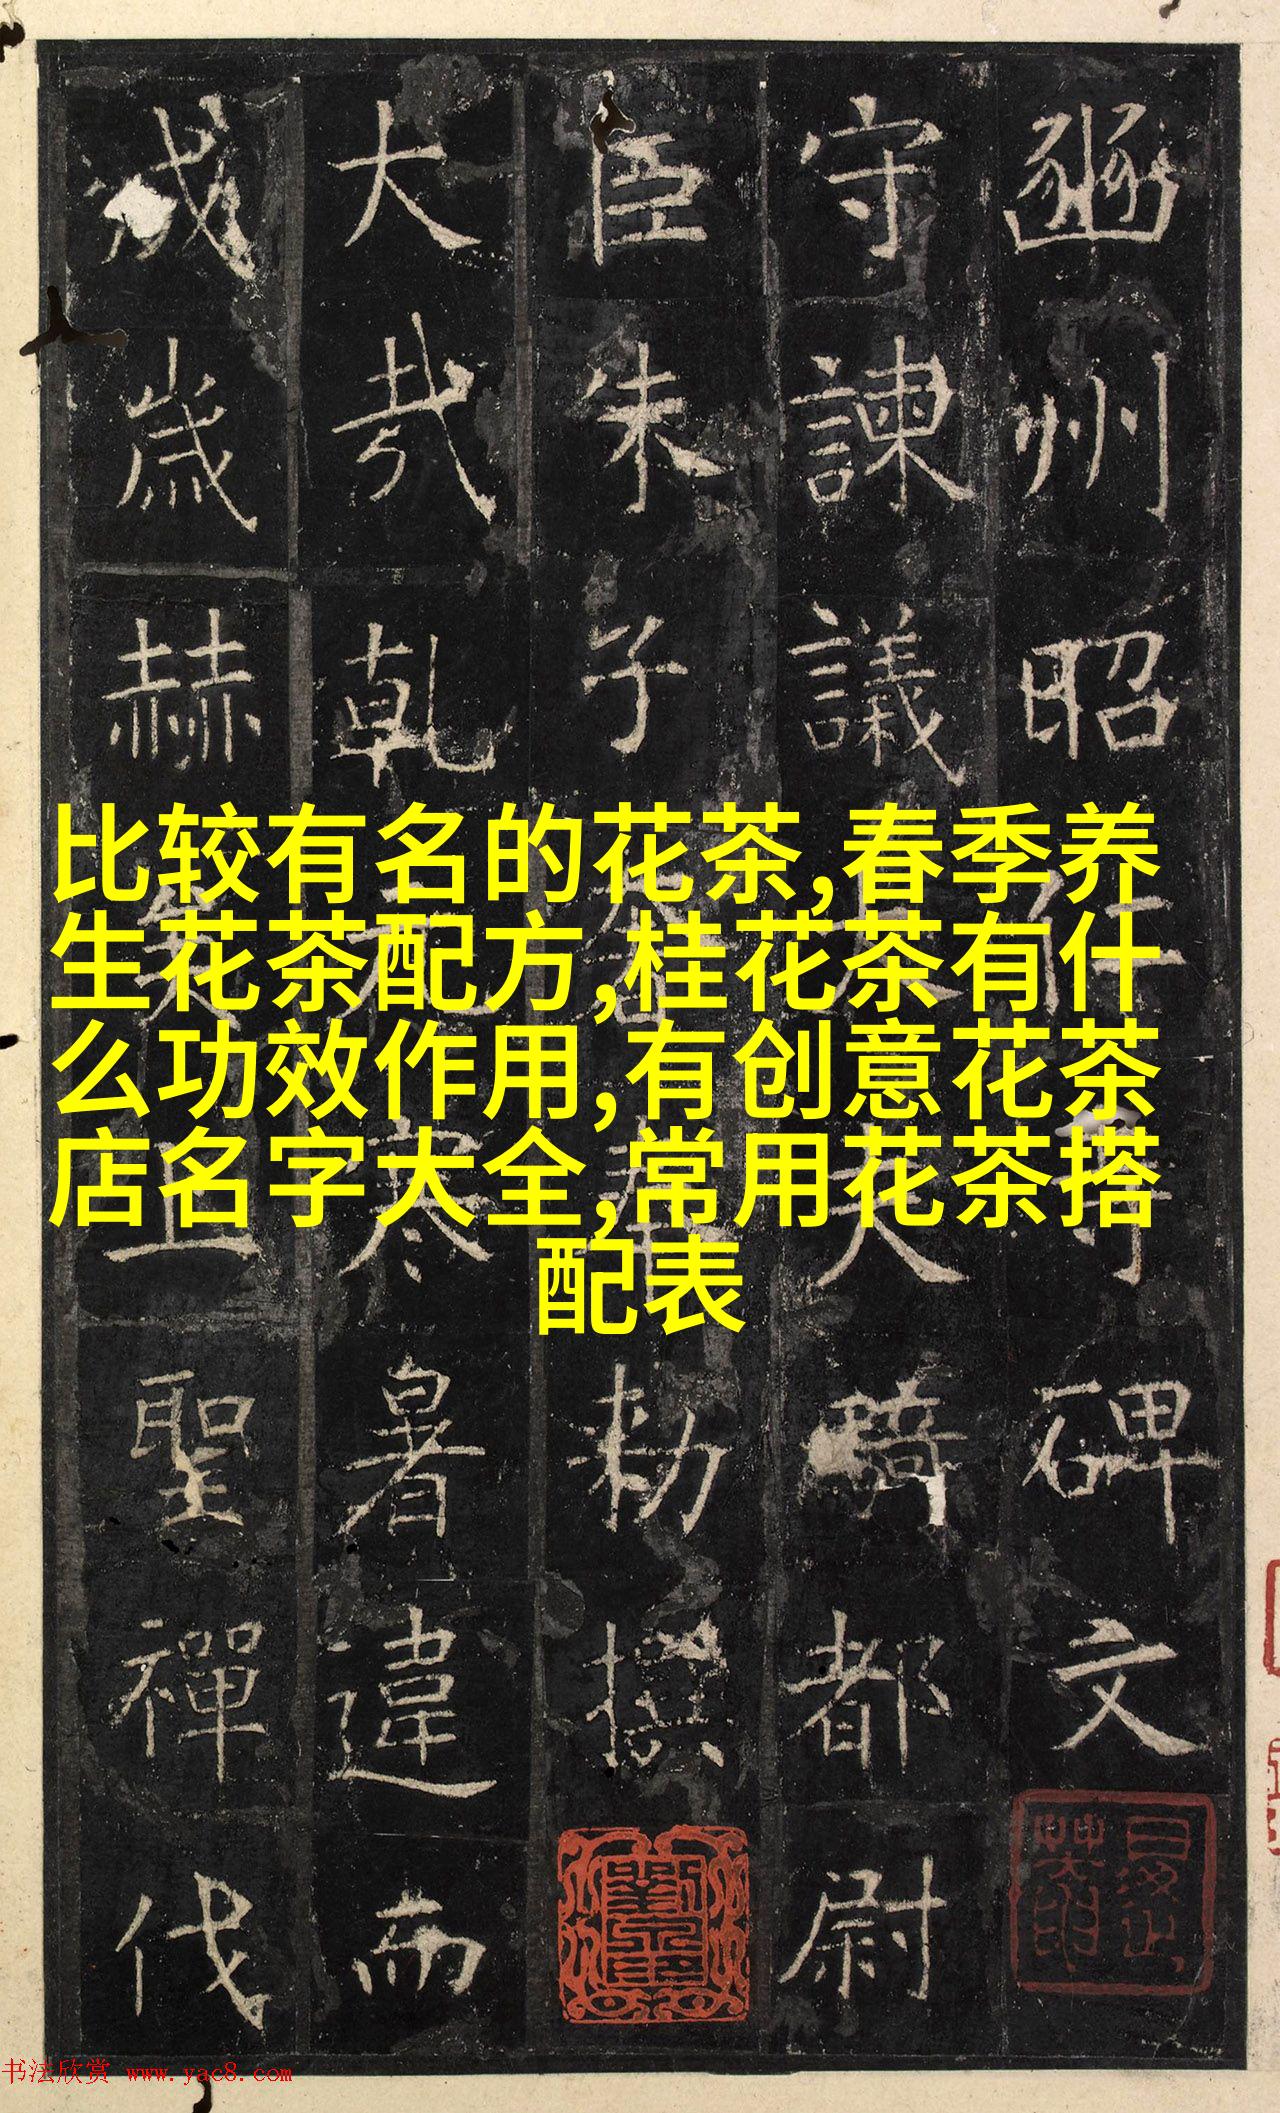 豳州昭仁寺碑文
守諫議大夫騎都尉
臣朱子奢奉勑撰
大哉乾元寒暑違而
成歲赫矣上聖禪代
比较有名的花茶,春季养
生花茶配方,桂花茶有什
么功效作用,有创意花茶
店名字大全,常用花茶搭
配表
书法欣赏 www.yac8.com